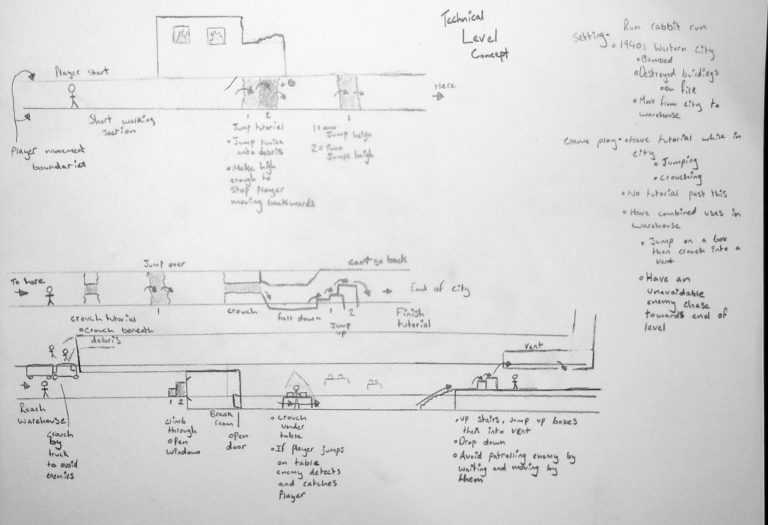 Technical
Level
Concept
Run rabbit run
Setting- 1940s Western city
Bombed
Destroyed buildings
on fire
Move from city to
warehouse
Game play- Have tutorial while in
city
Jumping
Crouching
No tutorial past this
Have combined uses in
warehouse
Jump on a box
then crouch into a
vent
Have an
unavoidable
enemy chase
towards end of
level
Player start
Here
Short walking
section
Player movement
boundaries
1 2
Jump tutorial
Jump twice
onto debris
Make high
enough to
stop player
moving backwards
1
1 = one
Jump heigh
2 = Two
Jumps heigh
To here
Jump over
can't go back
End of city
crouch tutorial
Crouch beneath
debris
1
crouch
fall down
1 2
Jump
up
Finish
tutorial
Reach
warehouse
crouch
by
truck
to avoid
enemies
1 2
climb
through
open
window
Break
room
open
door
crouch
under
table
If player jumps
on table
enemy detects
and catches
player
vent
up stairs, jump up boxes
then into vent
Drop down
Avoid patrolling enemy by
waiting and moving by
them